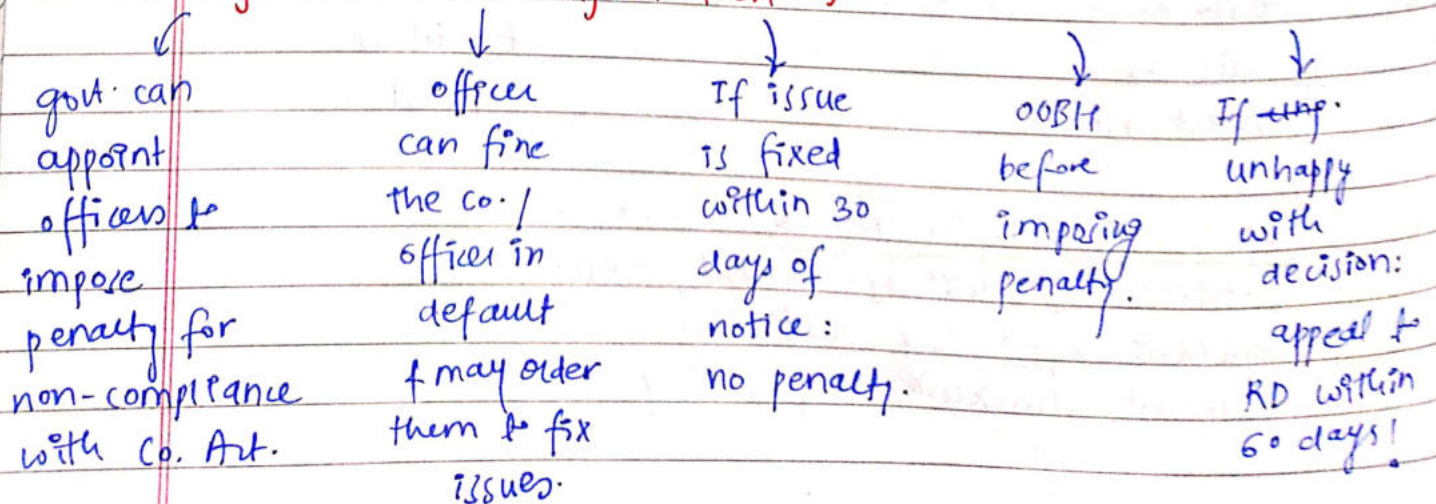 govt. can
appoint
officers to
impose
penalty for
non-compliance
with Co. Act.
officer
can fine
the co. /
officer in
default
& may order
them to fix
issues.
If issue
is fixed
within 30
days of
notice :
no penalty.
OOBH
before
imposing
penalty.
If
unhappy
with
decision:
appeal to
RD within
60 days!